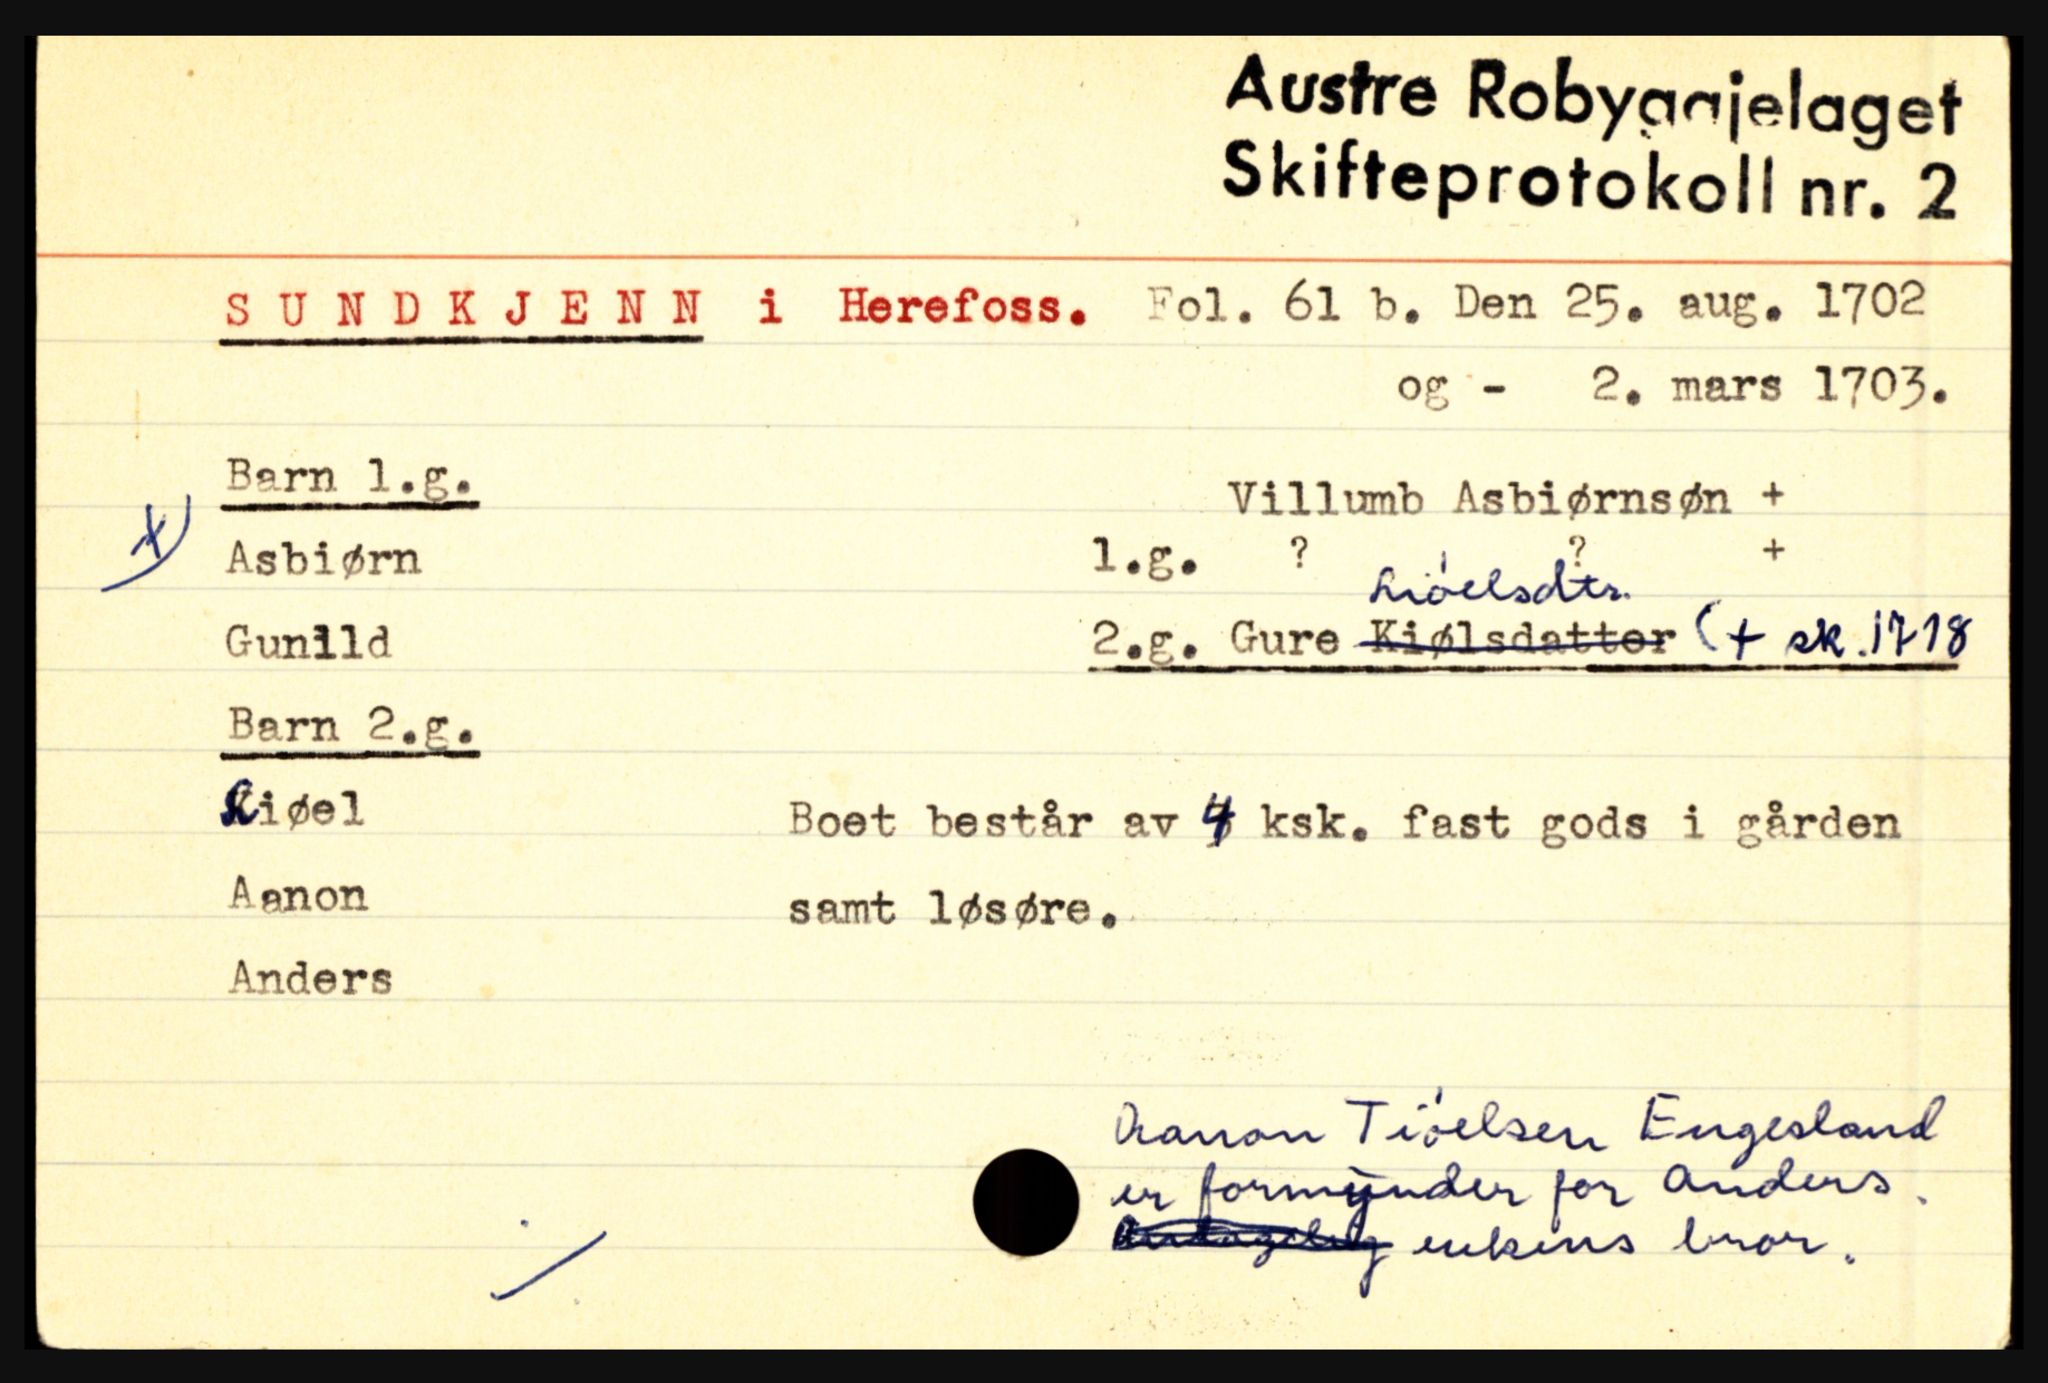 Austre Robyggjelaget
Skifteprotokoll nr. 2
S U N D K J E N N i Herefoss. Fol. 61 b. Den 25. aug. 1702
og - 2. mars 1703.
Barn 1.g.
Villumb Asbiørnsøn +
x)
Asbiørn
1.g. ? ? +
Gunild
Liöelsdtr.
2.g. Gure Kiølsdatter (+ sk. 1718
Barn 2.g.
Liøel
Boet består av 4 ksk. fast gods i gården
Aanon
samt løsøre.
Anders
Aanon Tiöelsen Engesland
er formynder for Anders.
enkens bror.